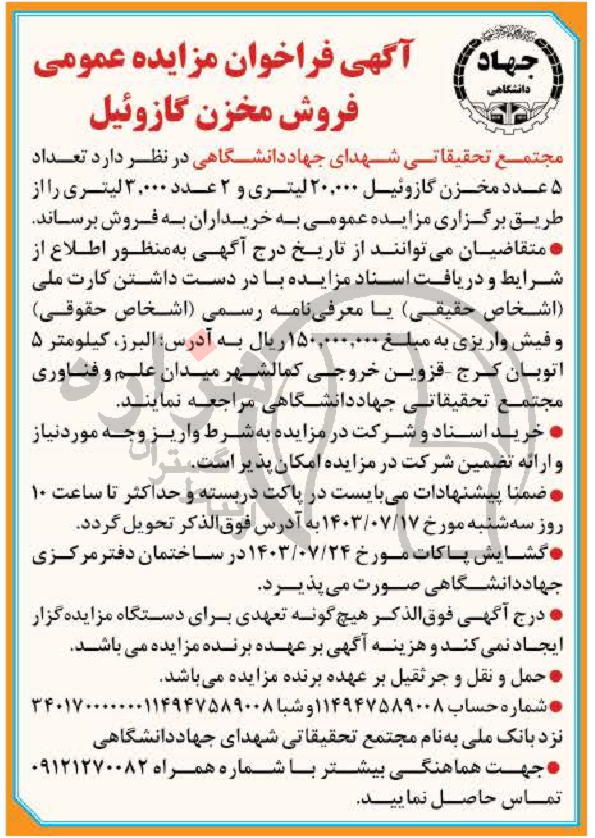 جهاد
دانشگاهی
آگهی فراخوان مزایده عمومی
فروش مخزن گازوئیل
مجتمع تحقیقاتی شهدای جهاددانشگاهی در نظر دارد تعداد
۵ عدد مخزن گازوئیل ۲۰,۰۰۰ لیتری و ۲ عدد ۳,۰۰۰ لیتری را از
طریق برگزاری مزایده عمومی به خریداران به فروش برساند.
● متقاضیان می‌توانند از تاریخ درج آگهی به‌منظور اطلاع از
شرایط و دریافت اسناد مزایده با در دست داشتن کارت ملی
(اشخاص حقیقی) یا معرفی‌نامه رسمی (اشخاص حقوقی)
و فیش واریزی به مبلغ ۱۵۰,۰۰۰,۰۰۰ ریال به آدرس: البرز، کیلومتر ۵
اتوبان کرج -قزوین خروجی کمالشهر میدان علم و فناوری
مجتمع تحقیقاتی جهاددانشگاهی مراجعه نمایند.
● خرید اسناد و شرکت در مزایده به‌شرط واریز وجه موردنیاز
و ارائه تضمین شرکت در مزایده امکان‌پذیر است.
● ضمنا پیشنهادات می‌بایست در پاکت دربسته و حداکثر تا ساعت ۱۰
روز سه‌شنبه مورخ ۱۴۰۳/۰۷/۱۷ به آدرس فوق‌الذکر تحویل گردد.
● گشایش پاکات مورخ ۱۴۰۳/۰۷/۲۴ در ساختمان دفتر مرکزی
جهاددانشگاهی صورت می‌پذیرد.
● درج آگهی فوق‌الذکر هیچ‌گونه تعهدی برای دستگاه مزایده‌گزار
ایجاد نمی‌کند و هزینه آگهی بر عهده برنده مزایده می‌باشد.
● حمل و نقل و جرثقیل بر عهده برنده مزایده می‌باشد.
● شماره حساب ۰۱۱۴۹۴۷۵۸۹۰۰۸ و شبا ۳۴۰۱۷۰۰۰۰۰۰۰۱۱۴۹۴۷۵۸۹۰۰۸
نزد بانک ملی به‌نام مجتمع تحقیقاتی شهدای جهاددانشگاهی
● جهت هماهنگی بیشتر با شماره همراه ۰۹۱۲۱۲۷۰۰۸۲
تماس حاصل نمایید.
هزاره